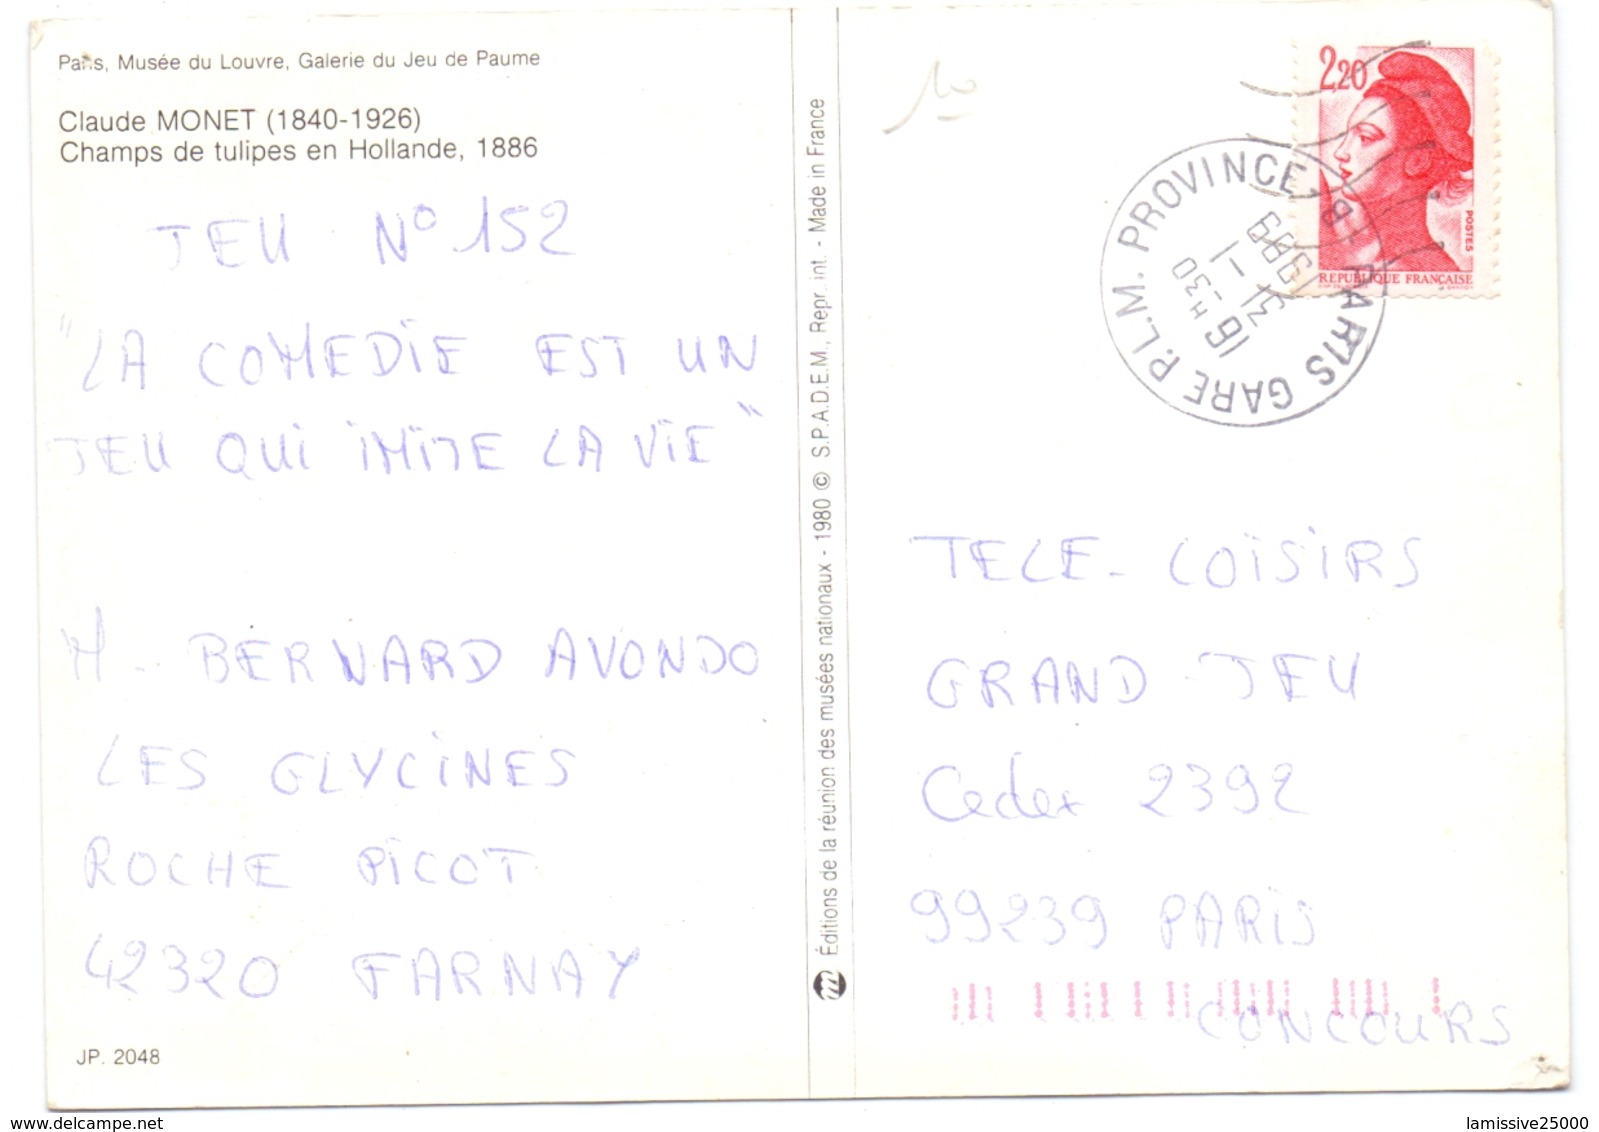 Paris, Musée du Louvre, Galerie du Jeu de Paume
Claude MONET (1840-1926)
Champs de tulipes en Hollande, 1886
JEU N° 152
"LA COMEDIE EST UN
JEU QUI IMITE LA VIE"
M. BERNARD AVONDO
LES GLYCINES
ROCHE PICOT
42320 FARNAY
JP. 2048
Éditions de la réunion des musées nationaux - 1980 © S.P.A.D.E.M., Repr. int. - Made in France
10
2,20
POSTES
REPUBLIQUE FRANÇAISE
PARIS GARE P.L.M. PROVINCE-B
16 H 30
31-1
1989
TELE-LOISIRS
GRAND JEU
Cedex 2392
99239 PARIS
CONCOURS
www.delcampe.net
lamissive25000